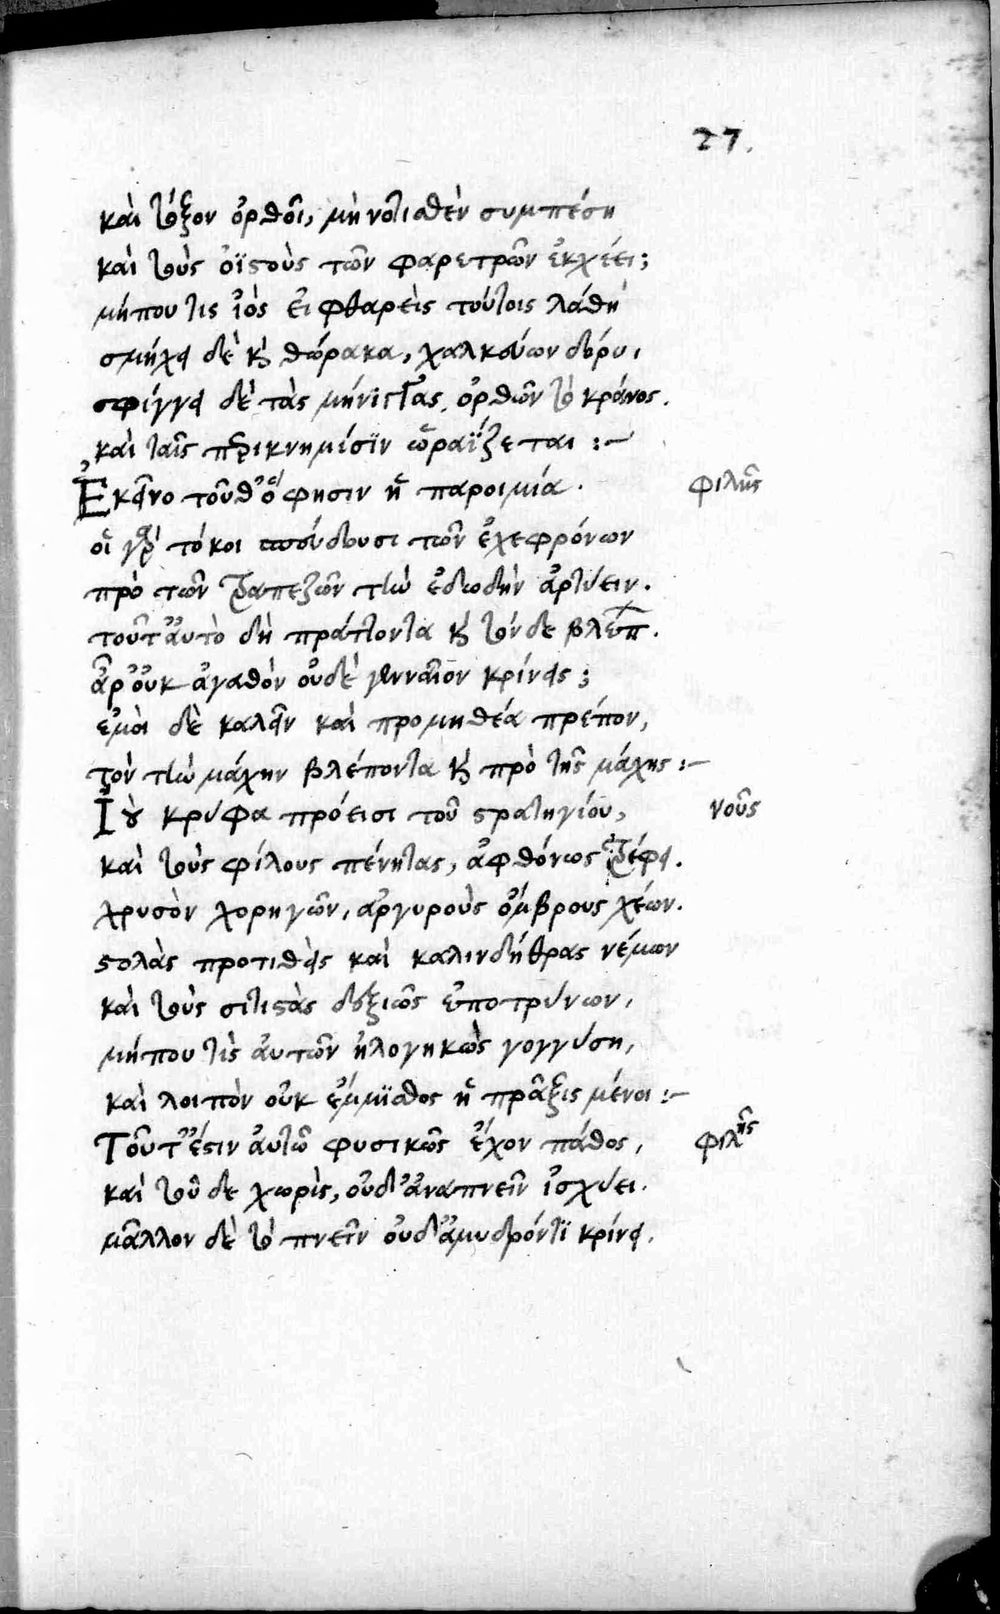 27.
καὶ τόξον ὀρθοῖ, μὴ νοτισθὲν συμπέσῃ
καὶ τοὺς ὀϊστοὺς τῶν φαρετρῶν ἐκχέει;
μήπου τις ἰὸς εἰσφθαρεὶς τούτοις λάθῃ
σμήχει δὲ καὶ θώρακα, χαλκεύων δόρυ,
σφίγγει δὲ τὰς μήνιγγας, ὀρθῶν τὸ κράνος.
καὶ ταῖς περικνημίσϊν ὡραΐζεται :~
Ἐκεῖνο τοῦθ' ὅ φησιν ἡ παροιμία. φιλῆς
οἱ γὰρ τόκοι σπεύδουσι τῶν ἐχεφρόνων
πρὸ τῶν τραπεζῶν τὴν ἐδωδὴν ἀρτύειν.
τοῦτ' αὐτὸ δὴ πράττοντα καὶ τόνδε βλέπ.
ἆρ' οὐκ ἀγαθὸν οὐδὲ γενναῖον κρίνεις;
ἐμοὶ δὲ καλεῖν καὶ προμηθέα πρέπον,
τὸν τὴν μάχην βλέποντα καὶ πρὸ τῆς μάχης :~
Ἰοὺ κρύφα πρόεισι τοῦ στρατηγίου, νοῦς
καὶ τοὺς φίλους πένητας, ἀφθόνως τρέφει.
χρυσὸν χορηγῶν, ἀργυροῦς ὄμβρους χέων.
στολὰς προτιθεὶς καὶ καλινδήθρας νέμων
καὶ τοὺς σιτιστὰς δεξιῶς ἐποτρύνων,
μήπου τὶς αὐτῶν ἠλογηκὼς γογγύσῃ,
καὶ λοιπὸν οὐκ ἔμμϊσθος ἡ πρᾶξις μένοι :~
Τοῦτ' ἔστιν αὐτῷ φυσικῶς ἔχον πάθος, φιλῆς
καὶ τοῦ δε χωρὶς, οὐδ' ἀναπνεῖν ἰσχύει.
μᾶλλον δὲ τὸ πνεῖν οὐδ' ἀμυδρόντϊ κρίνει.